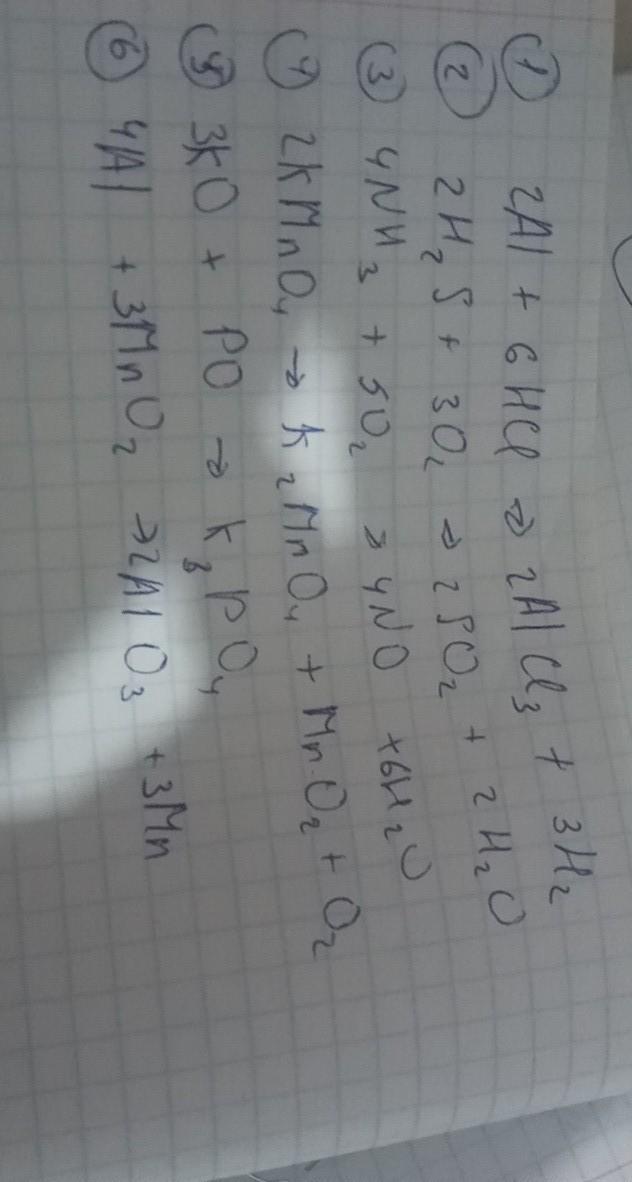 ① 2Al + 6HCl → 2AlCl₃ + 3H₂
② 2H₂S + 3O₂ → 2SO₂ + 2H₂O
③ 4NH₃ + 5O₂ → 4NO + 6H₂O
④ 2KMnO₄ → K₂MnO₄ + MnO₂ + O₂
⑤ 3KO + PO → K₃PO₄
⑥ 4Al + 3MnO₂ → 2AlO₃ + 3Mn